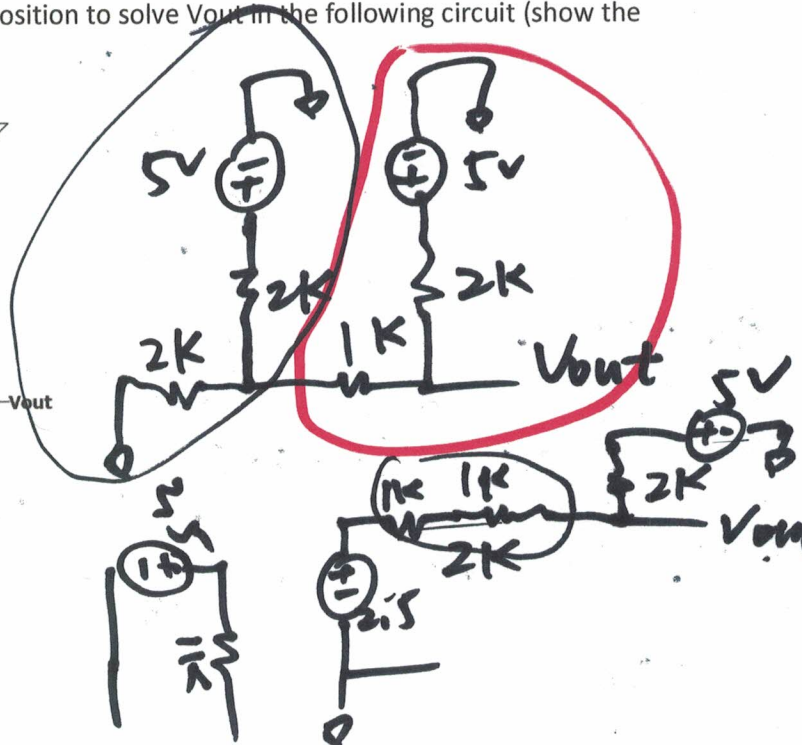 osition to solve Vout in the following circuit (show the
5V
5V
2K
2K
2K
1K
Vout
Vout
5V
2K
1K 1K
2K
2.5
5